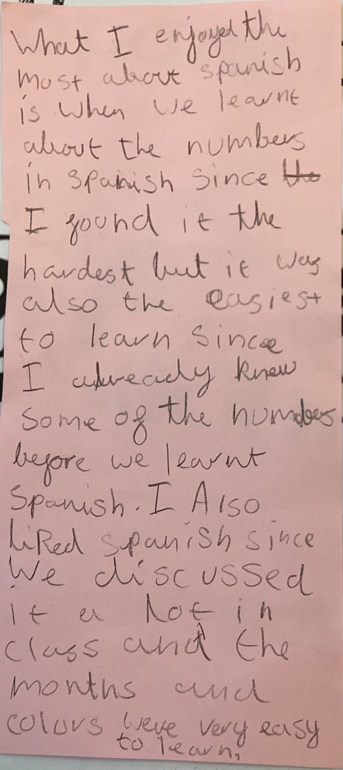 What I enjoyed the
most about spanish
is when we learnt
about the numbers
in spanish since the
I found it the
hardest but it was
also the easiest
to learn since
I already knew
some of the numbers
before we learnt
Spanish. I Also
liked spanish since
We discussed
it a lot in
class and the
months and
colors were very easy
to learn.